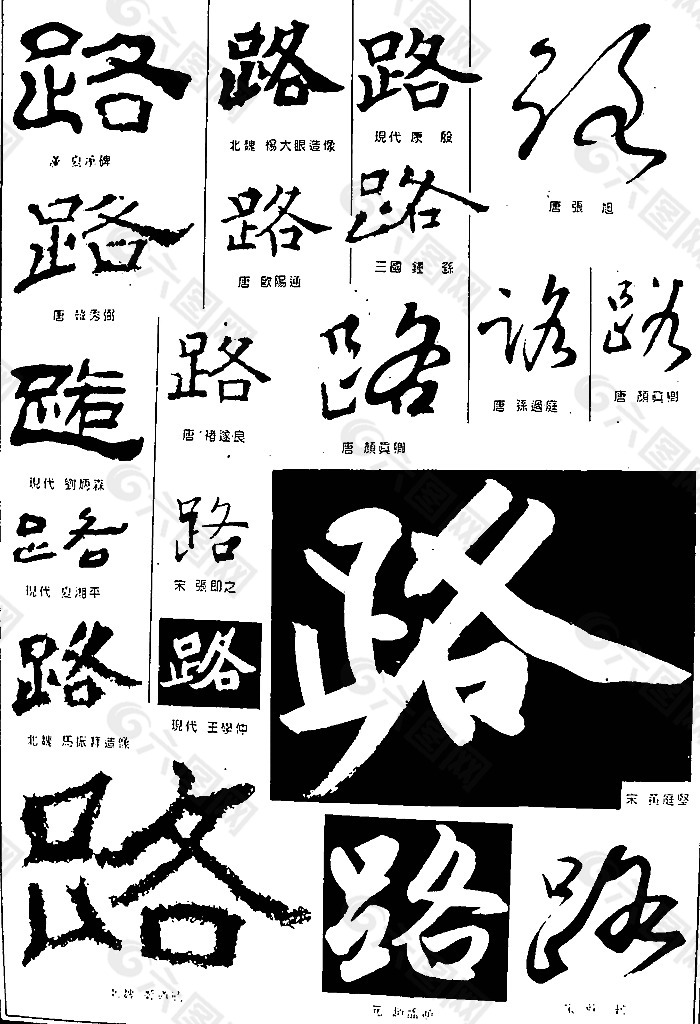 路
路
路
路
漢 夏承碑
北魏 楊大眼造像
現代 康 殷
唐 張 旭
路
路
路
唐 韓秀弼
唐 歐陽通
三國 鍾 繇
路
路
路
路
唐 褚遂良
唐 顏真卿
唐 孫過庭
唐 顏真卿
路
現代 劉炳森
路
路
現代 夏湘平
宋 張即之
路
路
路
北魏
現代 王學仲
宋 黃庭堅
路
路
路
北魏
元
宋